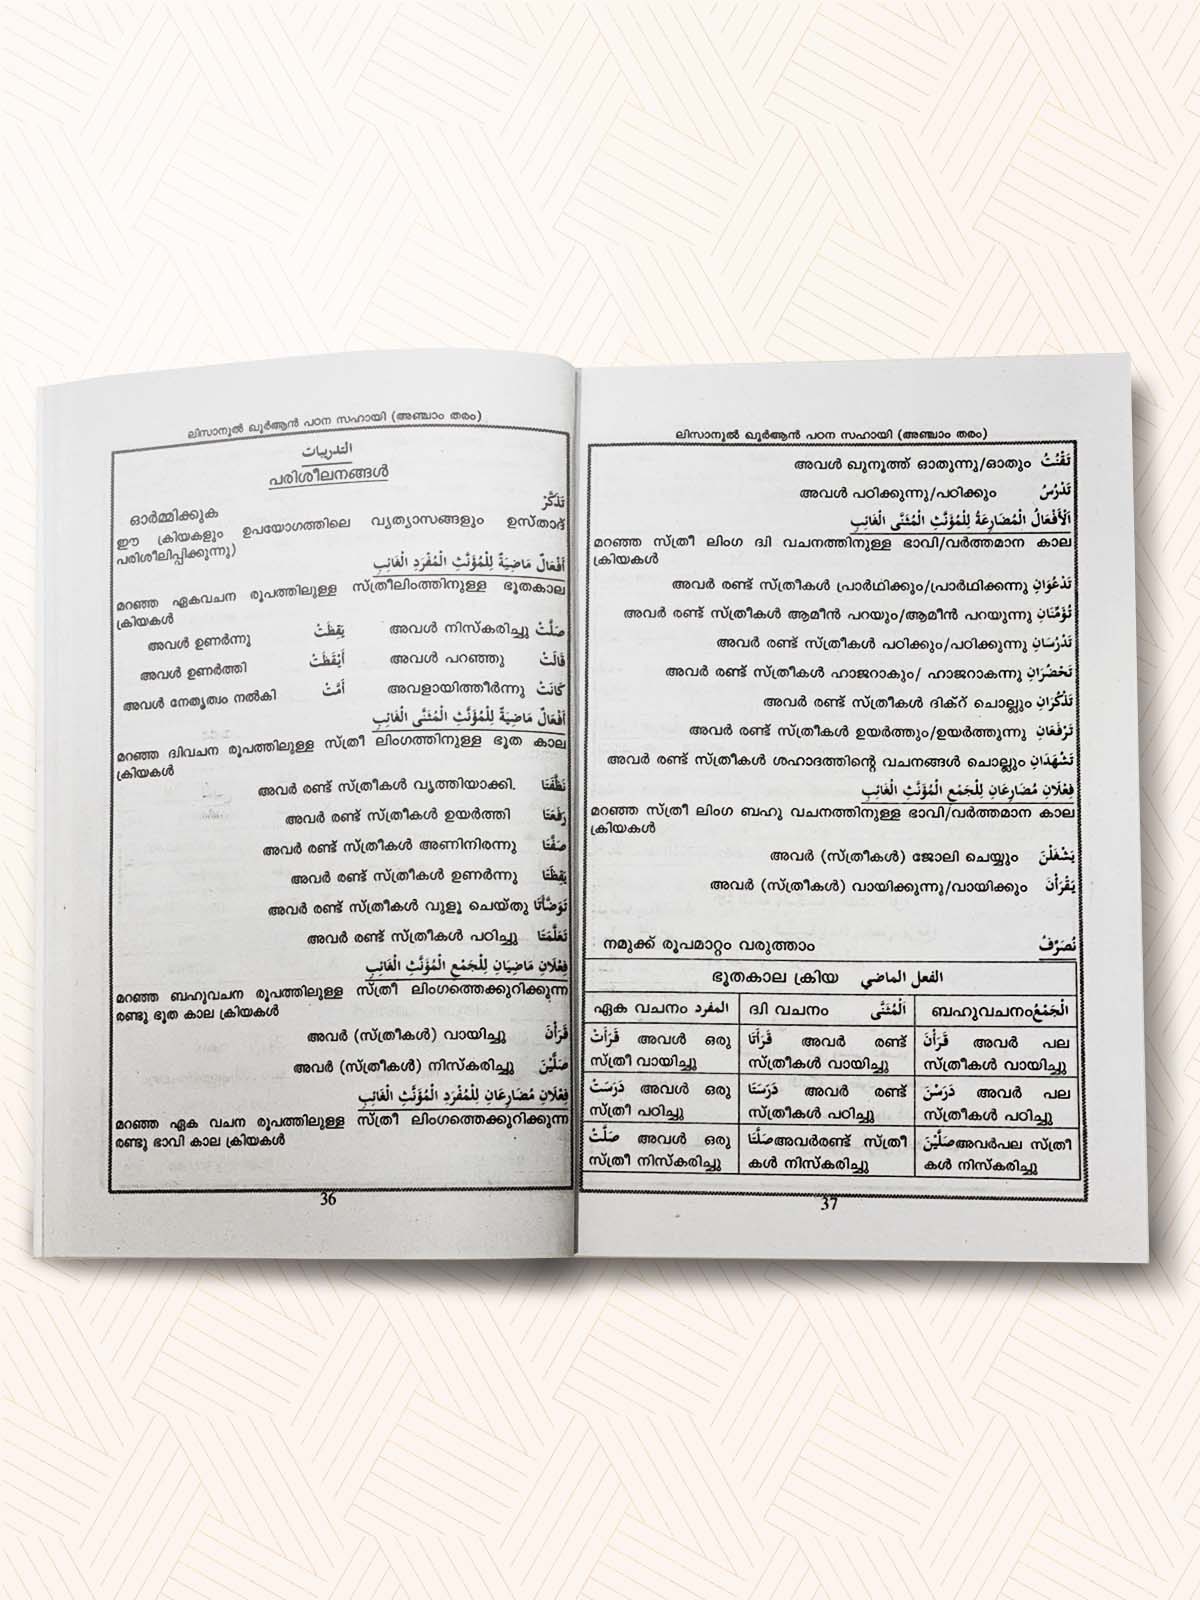 ലിസാനുൽ ഖുർആൻ പഠന സഹായി (അഞ്ചാം തരം)
التدريبات
പരിശീലനങ്ങൾ
تَذَكَّرْ ഓർമ്മിക്കുക
ഈ ക്രിയകളും ഉപയോഗത്തിലെ വ്യത്യാസങ്ങളും ഉസ്താദ്
പരിശീലിപ്പിക്കുന്നു)
أَفْعَالٌ مَاضِيَةٌ لِلْمُؤَنَّثِ الْمُفْرَدِ الْغَائِبِ
മറഞ്ഞ ഏകവചന രൂപത്തിലുള്ള സ്ത്രീലിംത്തിനുള്ള ഭൂതകാല
ക്രിയകൾ
صَلَّتْ അവൾ നിസ്കരിച്ചു يَقِظَتْ അവൾ ഉണർന്നു
قَالَتْ അവൾ പറഞ്ഞു أَيْقَظَتْ അവൾ ഉണർത്തി
كَانَتْ അവളായിത്തീർന്നു أَمَّتْ അവൾ നേതൃത്വം നൽകി
أَفْعَالٌ مَاضِيَةٌ لِلْمُؤَنَّثِ الْمُثَنَّى الْغَائِبِ
മറഞ്ഞ ദ്വിവചന രൂപത്തിലുള്ള സ്ത്രീ ലിംഗത്തിനുള്ള ഭൂത കാല
ക്രിയകൾ
نَظَّفَتَا അവർ രണ്ട് സ്ത്രീകൾ വൃത്തിയാക്കി.
رَفَعَتَا അവർ രണ്ട് സ്ത്രീകൾ ഉയർത്തി
صَفَّتَا അവർ രണ്ട് സ്ത്രീകൾ അണിനിരന്നു
يَقِظَتَا അവർ രണ്ട് സ്ത്രീകൾ ഉണർന്നു
تَوَضَّأَتَا അവർ രണ്ട് സ്ത്രീകൾ വുളൂ ചെയ്തു
تَعَلَّمَتَا അവർ രണ്ട് സ്ത്രീകൾ പഠിച്ചു
فِعْلَانِ مَاضِيَانِ لِلْجَمْعِ الْمُؤَنَّثِ الْغَائِبِ
മറഞ്ഞ ബഹുവചന രൂപത്തിലുള്ള സ്ത്രീ ലിംഗത്തെക്കുറിക്കുന്ന
രണ്ടു ഭൂത കാല ക്രിയകൾ
قَرَأْنَ അവർ (സ്ത്രീകൾ) വായിച്ചു
صَلَّيْنَ അവർ (സ്ത്രീകൾ) നിസ്കരിച്ചു
فِعْلَانِ مُضَارِعَانِ لِلْمُفْرَدِ الْمُؤَنَّثِ الْغَائِبِ
മറഞ്ഞ ഏക വചന രൂപത്തിലുള്ള സ്ത്രീ ലിംഗത്തെക്കുറിക്കുന്ന
രണ്ടു ഭാവി കാല ക്രിയകൾ
36
ലിസാനുൽ ഖുർആൻ പഠന സഹായി (അഞ്ചാം തരം)
تَقْنُتُ അവൾ ഖുനൂത്ത് ഓതുന്നു/ഓതും
تَدْرُسُ അവൾ പഠിക്കുന്നു/പഠിക്കും
اَلْأَفْعَالُ الْمُضَارِعَةُ لِلْمُؤَنَّثِ الْمُثَنَّى الْغَائِبِ
മറഞ്ഞ സ്ത്രീ ലിംഗ ദ്വി വചനത്തിനുള്ള ഭാവി/വർത്തമാന കാല
ക്രിയകൾ
تَدْعُوَانِ അവർ രണ്ട് സ്ത്രീകൾ പ്രാർഥിക്കും/പ്രാർഥിക്കന്നു
تُؤَمِّنَانِ അവർ രണ്ട് സ്ത്രീകൾ ആമീൻ പറയും/ആമീൻ പറയുന്നു
تَدْرُسَانِ അവർ രണ്ട് സ്ത്രീകൾ പഠിക്കും/പഠിക്കുന്നു
تَحْضُرَانِ അവർ രണ്ട് സ്ത്രീകൾ ഹാജറാകും/ ഹാജറാകന്നു
تَذْكُرَانِ അവർ രണ്ട് സ്ത്രീകൾ ദിക്റ് ചൊല്ലും
تَرْفَعَانِ അവർ രണ്ട് സ്ത്രീകൾ ഉയർത്തും/ഉയർത്തുന്നു
تَشْهَدَانِ അവർ രണ്ട് സ്ത്രീകൾ ശഹാദത്തിന്റെ വചനങ്ങൾ ചൊല്ലും
فِعْلَانِ مُضَارِعَانِ لِلْجَمْعِ الْمُؤَنَّثِ الْغَائِبِ
മറഞ്ഞ സ്ത്രീ ലിംഗ ബഹു വചനത്തിനുള്ള ഭാവി/വർത്തമാന കാല
ക്രിയകൾ
يَشْغَلْنَ അവർ (സ്ത്രീകൾ) ജോലി ചെയ്യും
يَقْرَأْنَ അവർ (സ്ത്രീകൾ) വായിക്കുന്നു/വായിക്കും
نُصَرِّفُ നമുക്ക് രൂപമാറ്റം വരുത്താം
ഭൂതകാല ക്രിയ الفعل الماضي
ഏക വചനം المفرد ദ്വി വചനം اَلْمُثَنَّى ബഹുവചനം الْجَمْعُ
قَرَأَتْ അവൾ ഒരു قَرَأَتَا അവർ രണ്ട് قَرَأْنَ അവർ പല
സ്ത്രീ വായിച്ചു സ്ത്രീകൾ വായിച്ചു സ്ത്രീകൾ വായിച്ചു
دَرَسَتْ അവൾ ഒരു دَرَسَتَا അവർ രണ്ട് دَرَسْنَ അവർ പല
സ്ത്രീ പഠിച്ചു സ്ത്രീകൾ പഠിച്ചു സ്ത്രീകൾ പഠിച്ചു
صَلَّتْ അവൾ ഒരു صَلَّتَاഅവർരണ്ട് സ്ത്രീ صَلَّيْنَഅവർപല സ്ത്രീ
സ്ത്രീ നിസ്കരിച്ചു കൾ നിസ്കരിച്ചു കൾ നിസ്കരിച്ചു
37